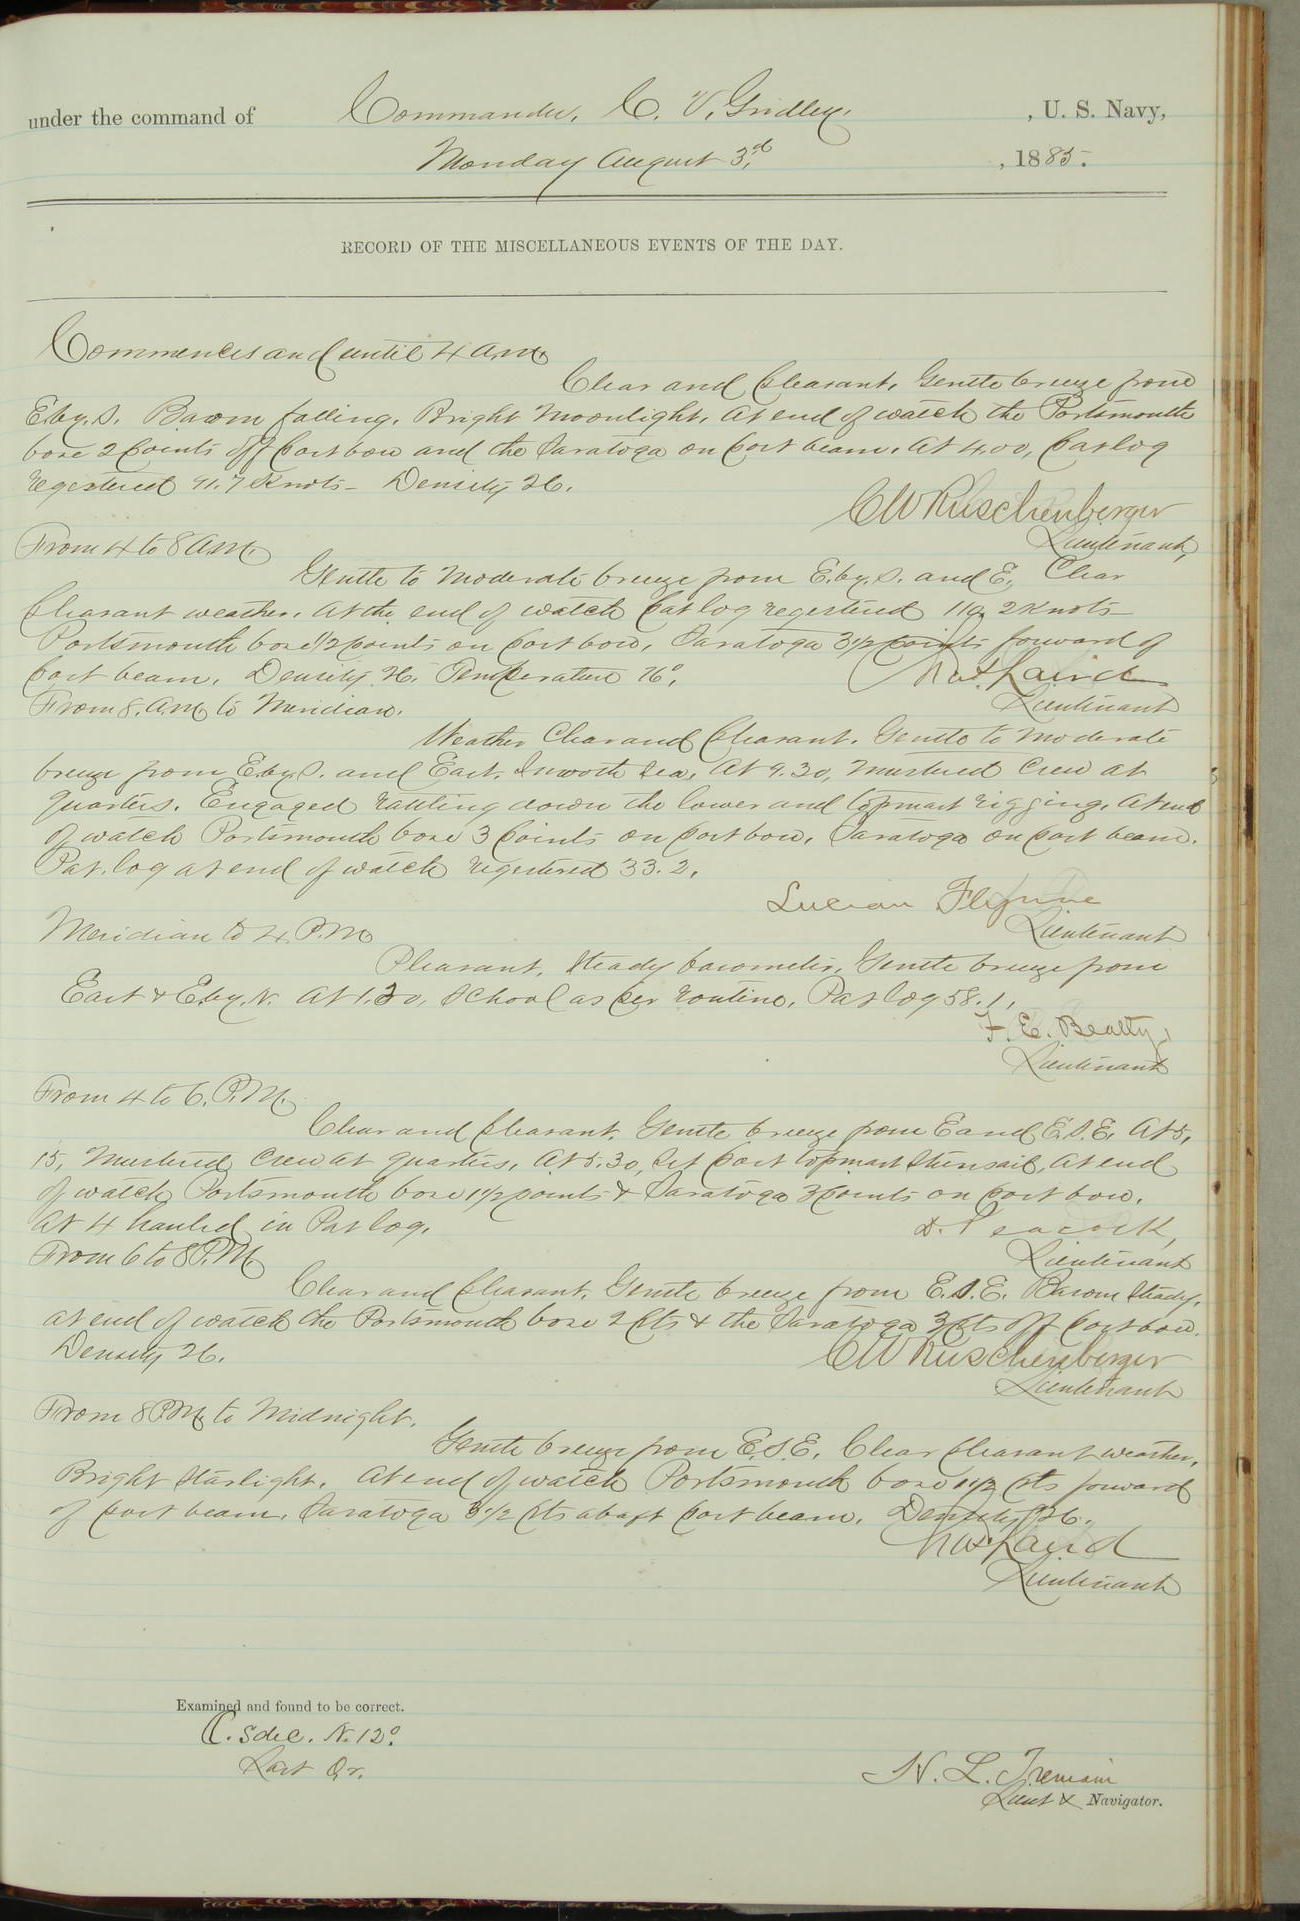 under the command of Commander, C. V. Gridley, , U. S. Navy,
Monday August 3rd , 1885.
RECORD OF THE MISCELLANEOUS EVENTS OF THE DAY.
Commences and until 4 A.M.
Clear and pleasant. Gentle breeze from
E.by.S. Barom falling. Bright Moonlight. At end of watch the Portsmouth
bore 2 points off port bow and the Saratoga on port beam. At 4.00, Pat log
registered 91.7 Knots - Density 26.
C W Ruschenberger
Lieutenant,
From 4 to 8 A.M.
Gentle to moderate breeze from E.by.S. and E. Clear
pleasant weather. At the end of watch Pat log registered 110.2 Knots
Portsmouth bore 1/2 points on port bow, Saratoga 3 1/2 points forward of
port beam. Density 26. Temperature 76°.
Chas Laird
Lieutenant
From 8. A.M. to Meridian.
Weather Clear and pleasant. Gentle to moderate
breeze from E.by.S. and East. Smooth sea. At 9.30, mustered crew at
quarters. Engaged rattling down the lower and topmast rigging. At end
of watch Portsmouth bore 3 points on port bow, Saratoga on port beam.
Pat. log at end of watch registered 33.2.
Lucian Flynne
Lieutenant
Meridian to 4. P.M.
Pleasant. Steady barometer. Gentle breeze from
East & E.by.N. At 1.30, School as per routine. Pat log 58.1.
F. E. Beatty,
Lieutenant
From 4 to 6. P.M.
Clear and pleasant. Gentle breeze from E and E.S.E. At 5.
15, Mustered crew at quarters. At 5.30, Set port topmast stunsail. At end
of watch Portsmouth bore 1 1/2 points & Saratoga 3 points on port bow.
At 4 hauled in Pat log.
D. Peacock,
Lieutenant
From 6 to 8 P.M.
Clear and pleasant. Gentle breeze from E.S.E. Barom Steady.
at end of watch the Portsmouth bore 2 pts & the Saratoga 3 pts off port bow.
Density 26.
C W Ruschenberger
Lieutenant
From 8 P.M. to Midnight.
Gentle breeze from E.S.E. Clear pleasant weather.
Bright Starlight. At end of watch Portsmouth bore 1 1/2 pts forward
of port beam. Saratoga 3 1/2 pts abaft port beam. Density 26.
Chas Laird
Lieutenant
Examined and found to be correct.
N. 12°.
Last Qr.
N. L. Tremain
Lieut & Navigator.